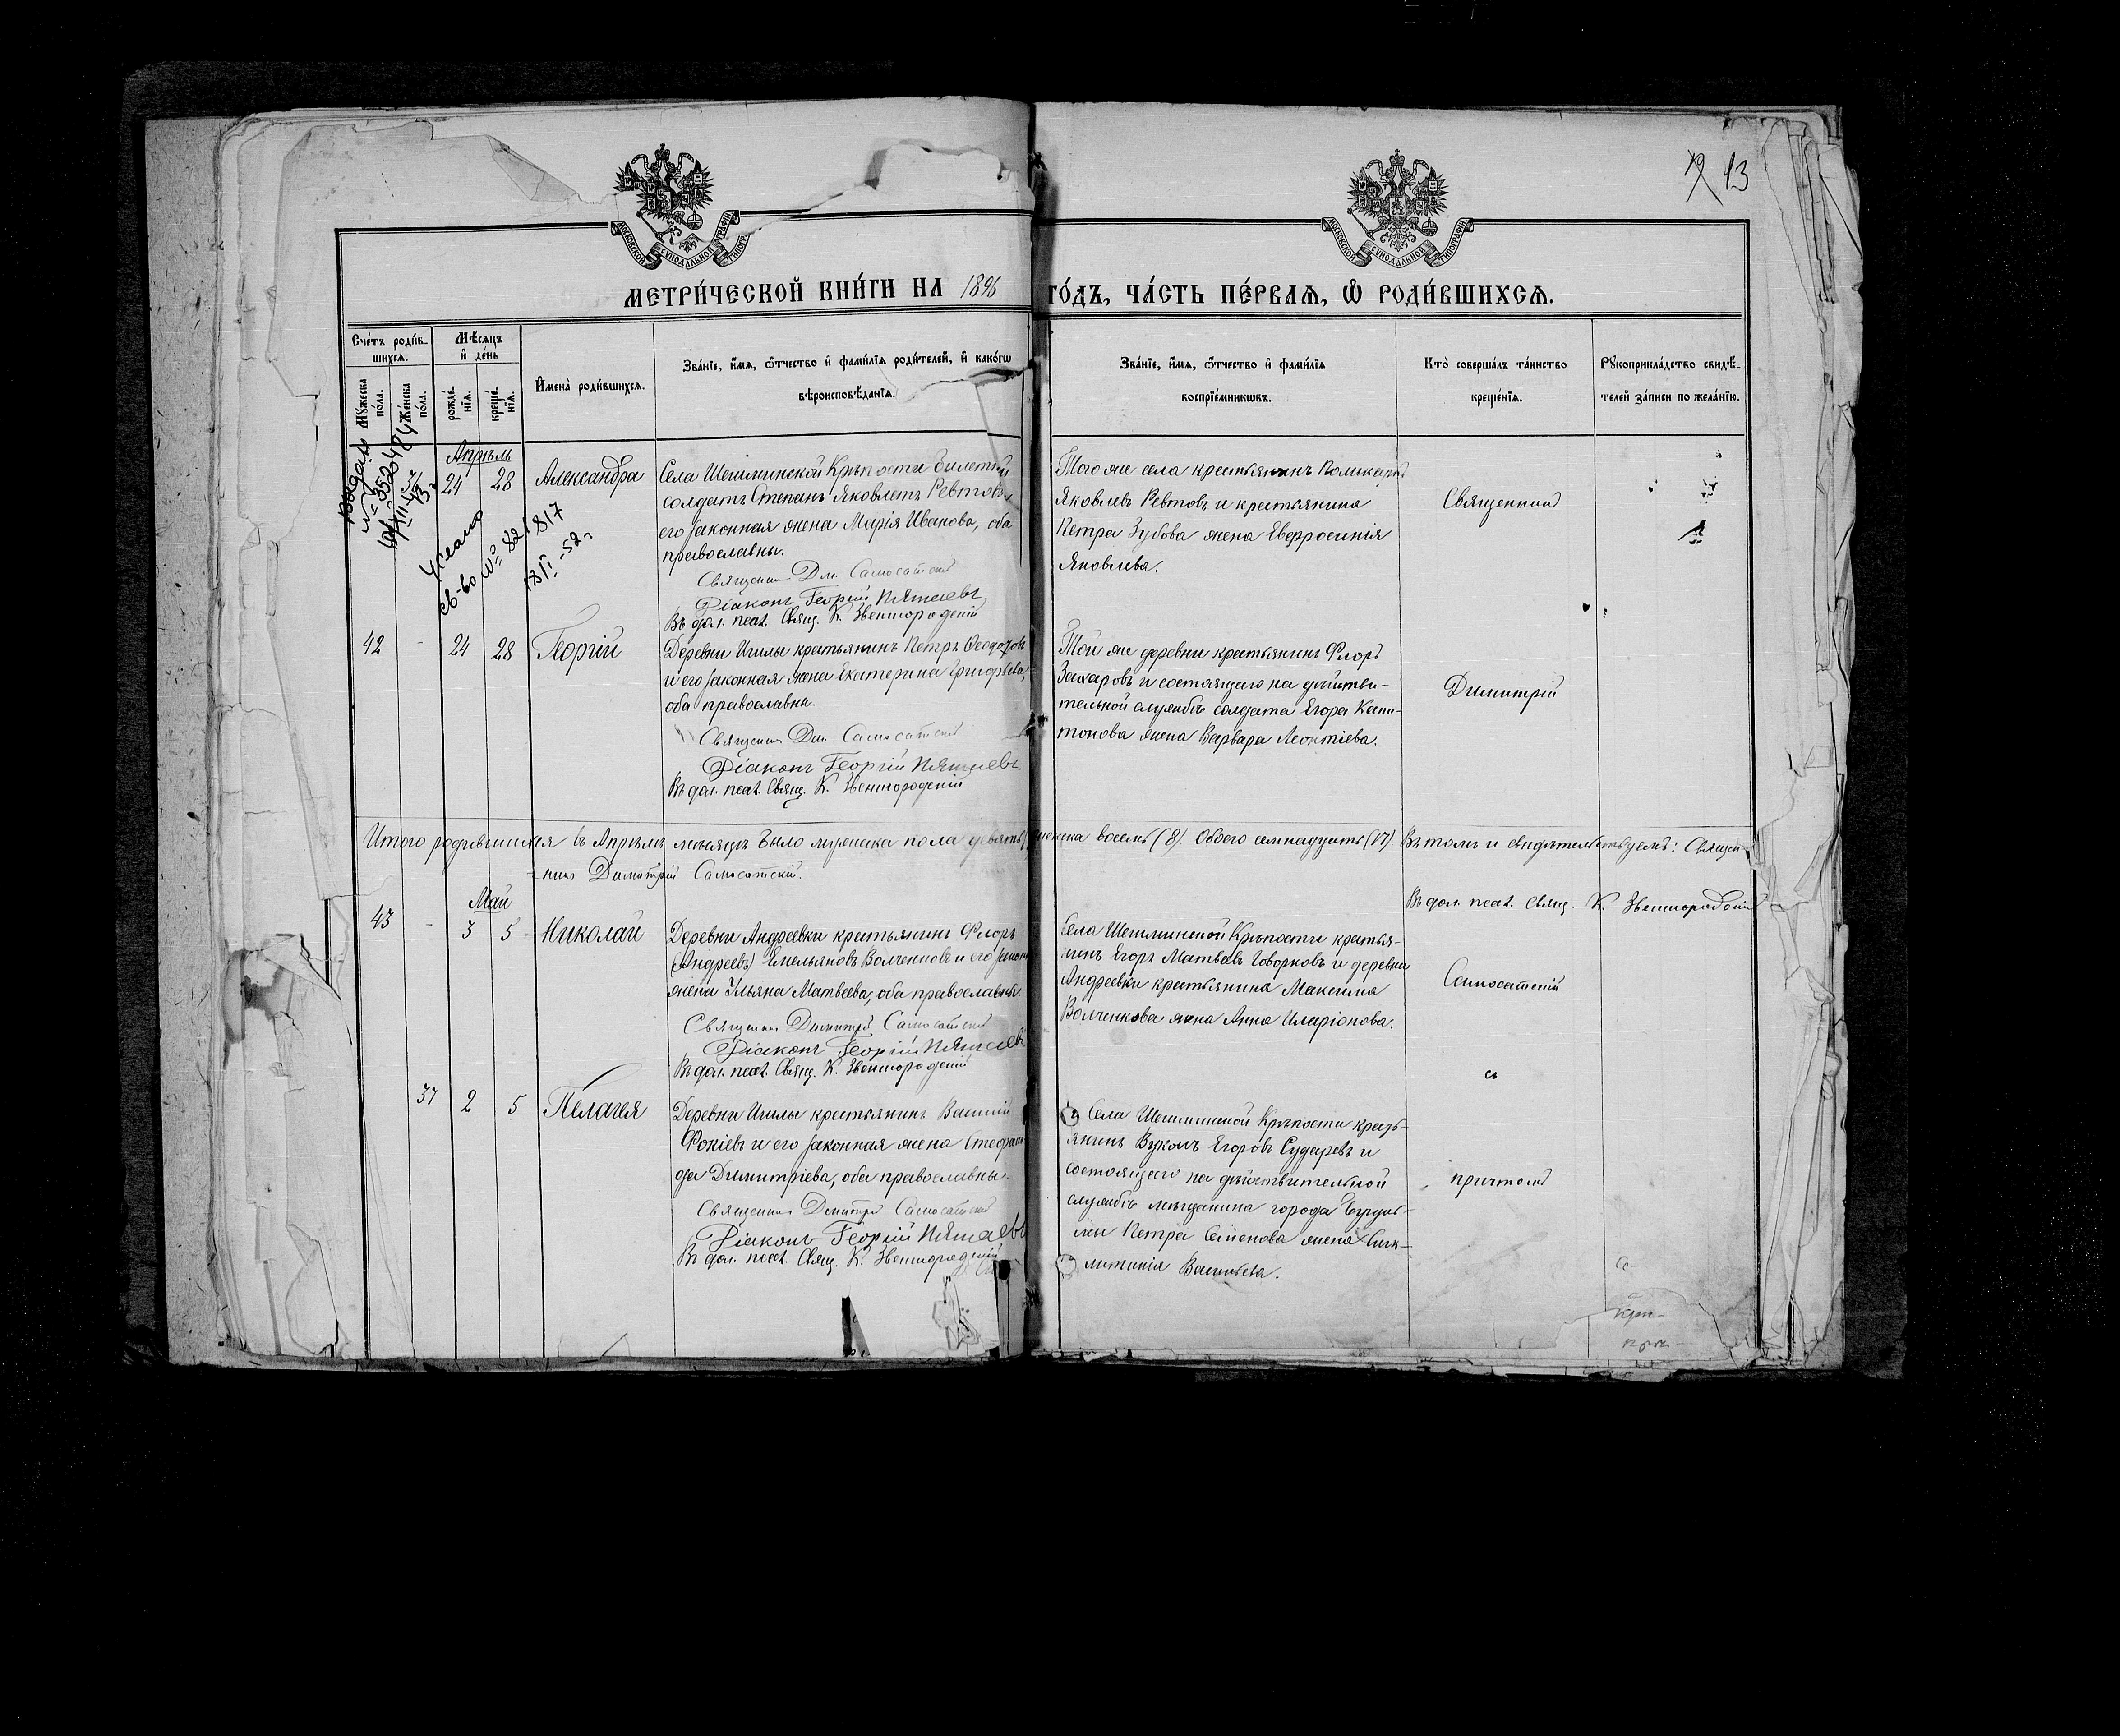 13
МОСКОВСКОЙ СѴНОДАЛЬНОЙ ТИПОГРАФІИ
МОСКОВСКОЙ СѴНОДАЛЬНОЙ ТИПОГРАФІИ
МЕТРИ́ЧЕСКОЙ КНИ́ГИ НА 1896 ГО́ДЪ, ЧА́СТЬ ПЕ́РВАѦ, Ѡ҆ РОДИ́ВШИХСѦ.
Сче́тъ роди́в-
шихсѧ.
Мѣ́сѧцъ
и҆ де́нь
Мꙋ́жеска
по́ла.
Же́нска
по́ла.
рожде́-
нїѧ.
креще́-
нїѧ.
И҆мена̀ роди́вшихсѧ.
Зва́нїе, и҆́мѧ, ѻ҆́тчество и҆ фами́лїѧ роди́телей, и҆ како́гѡ
вѣроисповѣ́данїѧ.
Зва́нїе, и҆́мѧ, ѻ҆́тчество и҆ фами́лїѧ
воспрїе́мникѡвъ.
Кто̀ соверша́лъ та́инство
креще́нїѧ.
Рꙋкоприкла́дство свидѣ́-
телей за́писи по жела́нїю.
Апрѣль
24 28 Александра
Села Шешминской Крѣпости билетный
солдатъ Степанъ Яковлевъ Ревтовъ,
его законная жена Марія Иванова, оба
православны.
Священникъ Дим. Самосатскій
Діаконъ Георгій
Въ дол. псал. Свящ. К. Звенигородскій
Того же села крестьянинъ Поликарпъ
Яковлевъ Ревтовъ и крестьянина
Петра Зубова жена Евфросинія
Яковлева.
Священникъ
св-во № 821817
42 - 24 28 Георгій
Деревни Иглы крестьянинъ Петръ Ѳеодоровъ
и его законная жена Екатерина Григорьева,
оба православны.
Священникъ Дим. Самосатскій
Діаконъ Георгій
Въ дол. псал. Свящ. К. Звенигородскій
Той же деревни крестьянинъ Флоръ
Захаровъ и состоящаго на дѣйстви-
тельной службѣ солдата Егора Капи-
тонова жена Варвара Леонтіева.
Димитрій
Итого родившихся въ Апрѣлѣ мѣсяцѣ было мужеска пола девять женска восемь (8). Обоего семнадцать (17). Въ томъ и свидѣтельствуемъ: Священ-
никъ Димитрій Самосатскій.
Въ дол. псал. Свящ. К. Звенигородскій
Май
43 - 3 5 Николай
Деревни Андреевки крестьянинъ Флоръ
(Андреевъ) Емельяновъ Волченковъ и его законн
жена Ульяна Матвеева, оба православны.
Священникъ Димитрій Самосатскій
Діаконъ Георгій
Въ дол. псал. Свящ. К. Звенигородскій
Села Шешминской Крѣпости крестья-
нинъ Егоръ Матвѣевъ Говорковъ и деревни
Андреевки крестьянина Максима
Волченкова жена Анна Иларіонова.
Самосатскій
съ
37 2 5 Пелагея
Деревни Иглы крестьянинъ Василій
Фокіевъ и его законная жена Стефани
да Димитріева, оба православны.
Священникъ Димитрій Самосатскій
Діаконъ Георгій
Въ дол. псал. Свящ. К. Звенигородскій
Села Шешминской Крѣпости кресть-
янинъ Вуколъ Егоровъ Сударевъ и
состоящаго на дѣйствительной
службѣ мѣщанина города Бугуль-
мы Петра Семенова жена Синк-
литикія Васильева.
причтомъ